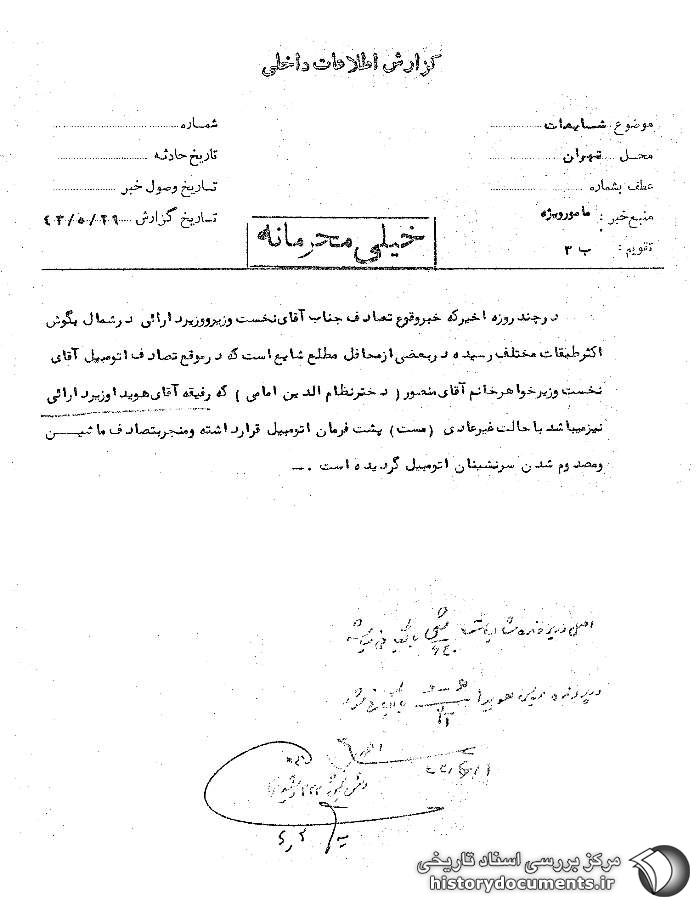 گزارش اطلاعات داخلی
موضوع شایعات
محل تهران
عطف بشماره
منبع خبر : مامور ویژه
تقویم : ب ۳
شماره
تاریخ حادثه
تاریخ وصول خبر
تاریخ گزارش ۴۳/۵/۲۶
خیلی محرمانه
در چند روزه اخیر که خبر وقوع تصادف جناب آقای نخست وزیر و وزیر دارائی در شمال بگوش
اکثر طبقات مختلف رسیده در بعضی از محافل مطلع شایع است که در موقع تصادف اتومبیل آقای
نخست وزیر خواهر خانم آقای منصور (دختر نظام الدین امامی) که رفیقه آقای هویدا وزیر دارائی
نیز میباشد با حالت غیر عادی (مست) پشت فرمان اتومبیل قرار داشته و منجر بتصادف ماشین
و مصدوم شدن سرنشینان اتومبیل گردیده است .
اصل در پرونده
در پرونده هویدا
مرکز بررسی اسناد تاریخی
historydocuments.ir